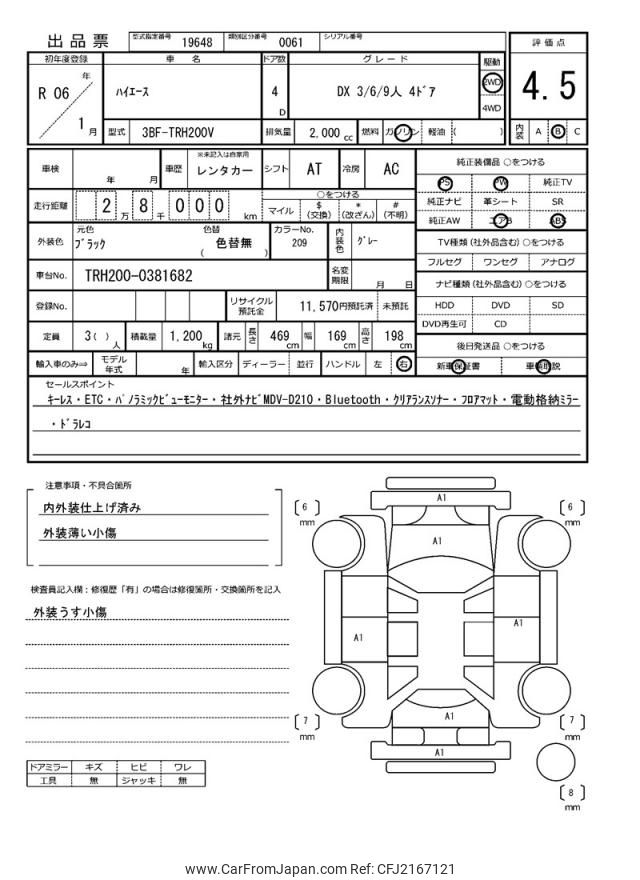 出品票 型式指定番号 19648 類別区分番号 0061 シリアル番号
初年度登録 車 名 ドア数 グレード 駆動 評価点
R 06 年 ハイエース 4 D DX 3/6/9人 4ドア 2WD 4WD 4.5
1 月 型式 3BF-TRH200V 排気量 2,000 cc 燃料 ガソリン 軽油 ( ) 内装 A B C
車検 年 月 車歴 ※未記入は自家用 レンタカー シフト AT 冷房 AC 純正装備品 ○をつける
PS PW 純正TV
走行距離 2 万 8 千 0 0 0 km ○をつける 純正ナビ 革シート SR
マイル $ (交換) * (改ざん) # (不明) 純正AW エアB ABS
外装色 元色 ブラック 色替 色替無 ( ) カラーNo. 209 内装色 グレー TV種類 (社外品含む) ○をつける
フルセグ ワンセグ アナログ
車台No. TRH200-0381682 名変期限 月 日 ナビ種類 (社外品含む) ○をつける
登録No. リサイクル預託金 11,570円預託済 未預託 HDD DVD SD
DVD再生可 CD
定員 3( ) 人 積載量 1,200 kg 諸元 長さ 469 cm 幅 169 cm 高さ 198 cm 後日発送品 ○をつける
輸入車のみ⇒ モデル年式 年 輸入区分 ディーラー 並行 ハンドル 左 右 新車保証書 車輌取説
セールスポイント
キーレス・ETC・パノラミックビューモニター・社外ナビMDV-D210・Bluetooth・クリアランスソナー・フロアマット・電動格納ミラー
・ドラレコ
注意事項・不具合箇所
内外装仕上げ済み
外装薄い小傷
検査員記入欄：修復歴「有」の場合は修復箇所・交換箇所を記入
外装うす小傷
A1
6 mm
6 mm
A1
A1
A1
A1
7 mm
7 mm
A1
8 mm
ドアミラー キズ ヒビ ワレ
工具 無 ジャッキ 無
www.CarFromJapan.com Ref: CFJ2167121